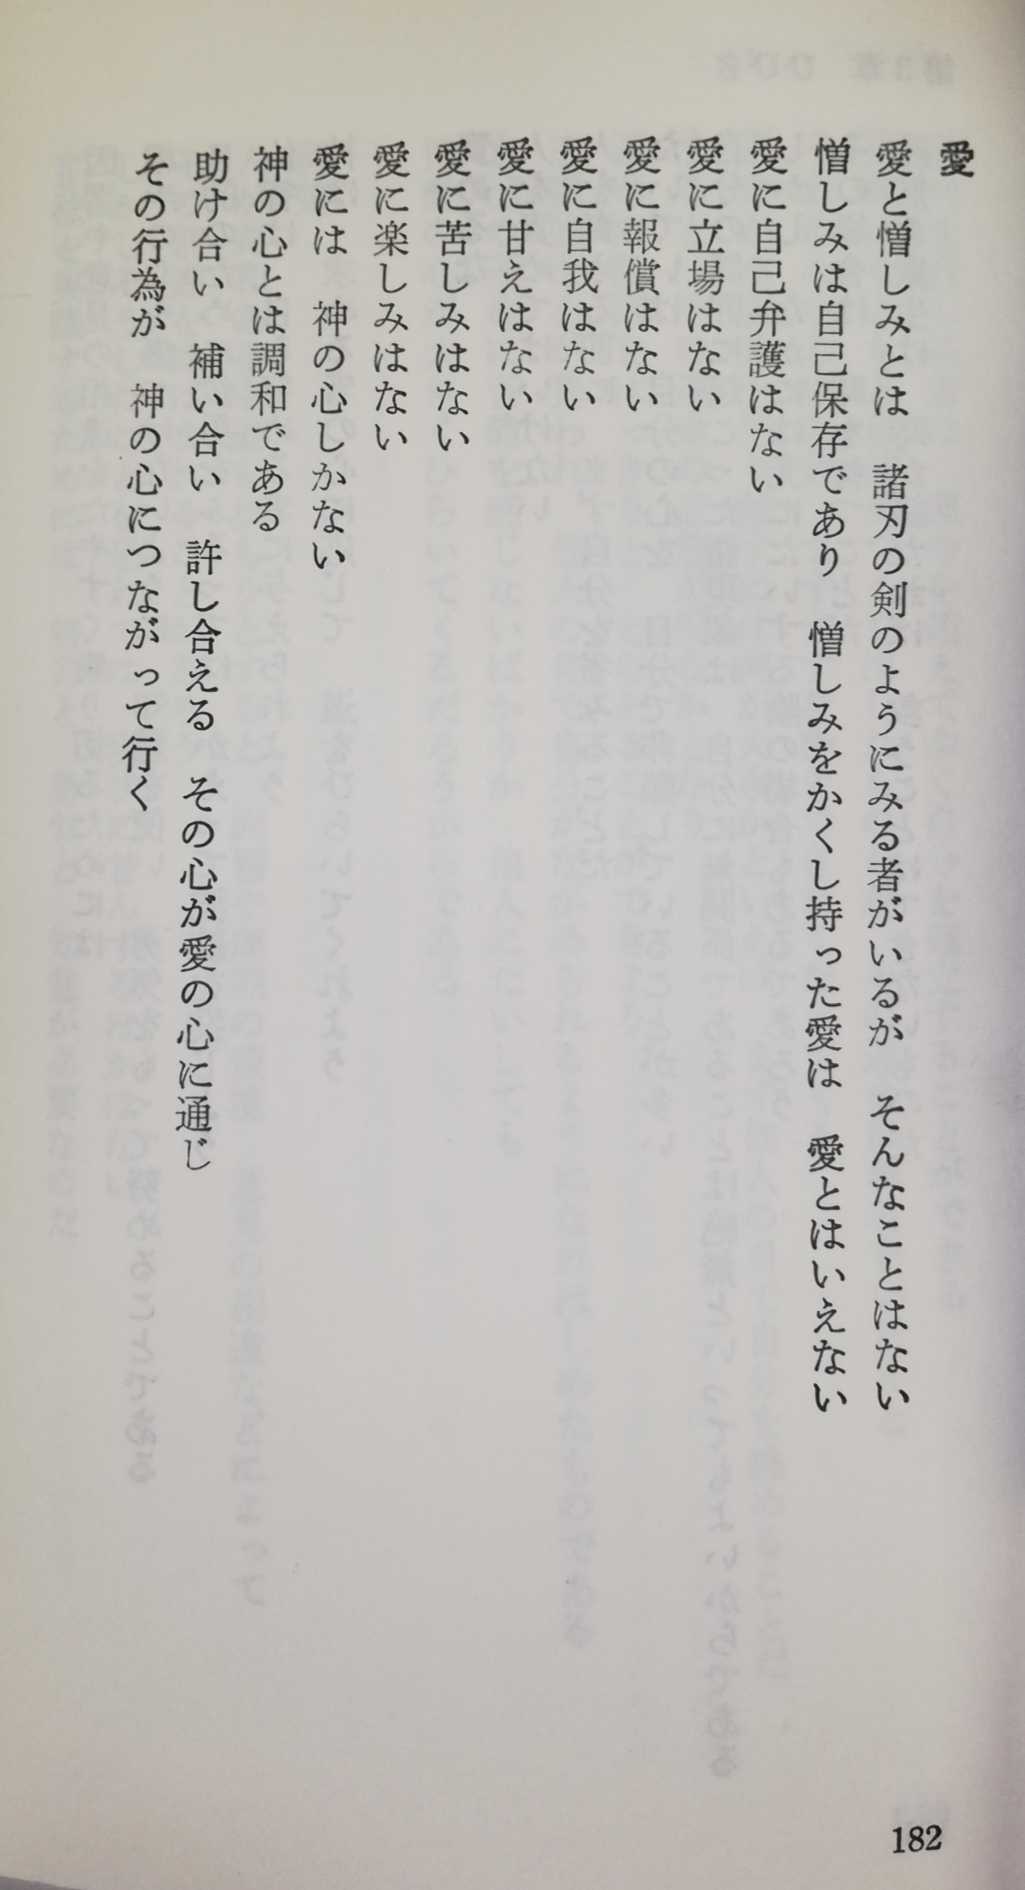 愛
愛と憎しみとは　諸刃の剣のようにみる者がいるが　そんなことはない
憎しみは自己保存であり　憎しみをかくし持った愛は　愛とはいえない
愛に自己弁護はない
愛に立場はない
愛に報償はない
愛に自我はない
愛に甘えはない
愛に苦しみはない
愛に楽しみはない
愛には　神の心しかない
神の心とは調和である
助け合い　補い合い　許し合える　その心が愛の心に通じ
その行為が　神の心につながって行く
182